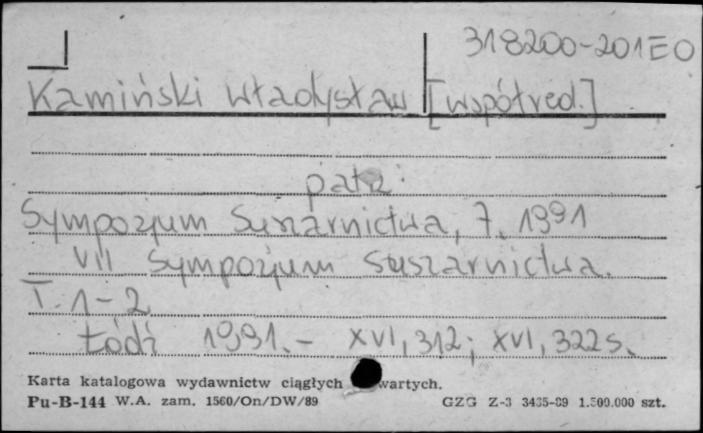 318200-201EO
Kamiński Władysław [współred.]
patrz:
Sympozjum Suszarnictwa, 7, 1991
VII Sympozjum Suszarnictwa.
T. 1-2
Łódź 1991.- XVI, 312; XVI, 322 s.
Karta katalogowa wydawnictw ciągłych wartych.
Pu-B-144 W.A. zam. 1560/On/DW/89 GZG Z-3 3435-89 1.500.000 szt.